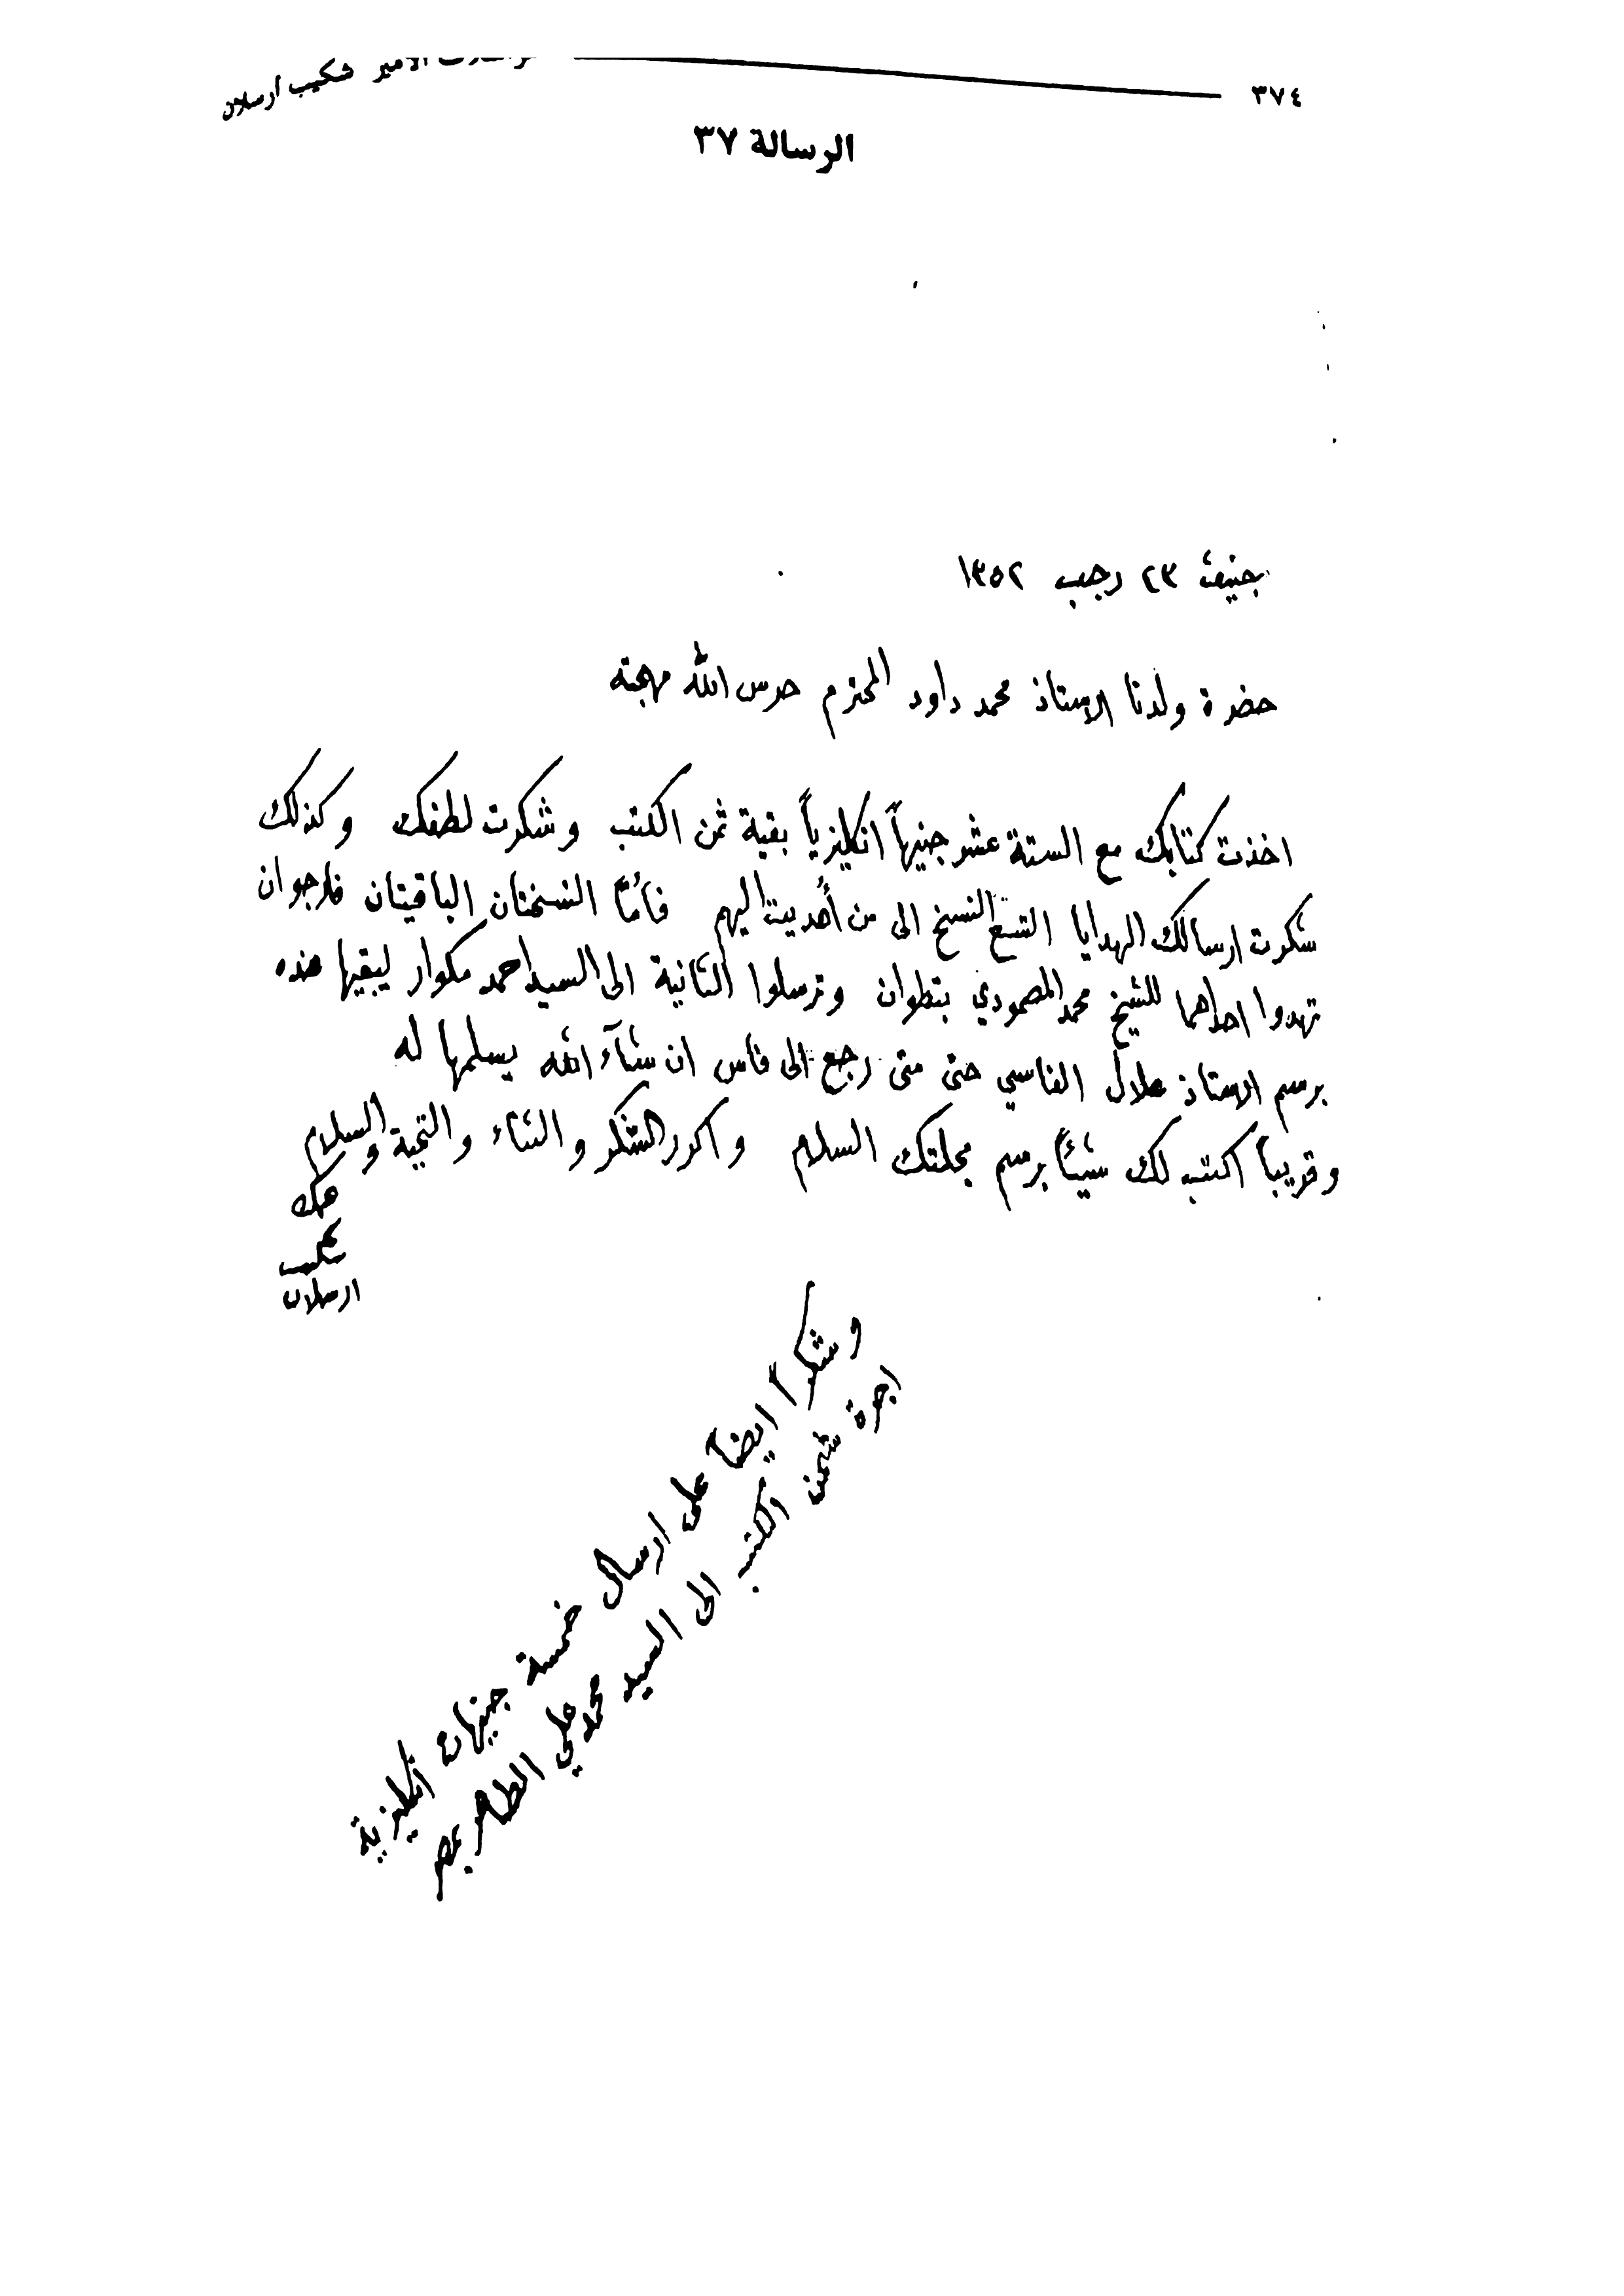 ٣٧٤
الامير شكيب ارسلان
الرسالة ٣٧
جنيف ٢٣ رجب ١٣٥٢
حضرة ولدنا الاستاذ محمد داود المحترم حرس الله مهجته
اخذت كتابك مع الستة عشر جنيهاً انكليزياً بقية ثمن الكتب وشكرت لطفك وكذلك
شكرت ارسالك الهدايا التسع النسخ الى من أُهديت اليهم فأمّا النسختان الباقيتان فارجو ان
تهدوا احداهما للشيخ محمد المصمودي بتطوان وترسلوا الثانية الى السيد احمد مكوار ليبقيها عنده
برسم الاستاذ علال الفاسي حتى متى رجع الى فاس ان شآء الله يسلمها له
وقريباً اكتب لك شيئاً برسم مجلتك السلام واكرر الشكر والثناء والتحية والسلام
عمك
شكيب
ارسلان
وشكراً ايضاً على ارسال خمسة جنيهات انكليزية
اجرة شحن الكتب الى السيد محمد علي الطاهر بمصر